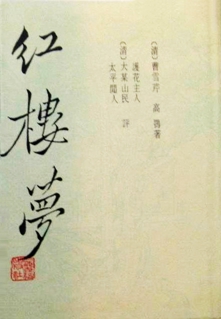 〔清〕曹雪芹 高鶚 著
護花主人
〔清〕大某山民 評
太平閒人
红樓夢